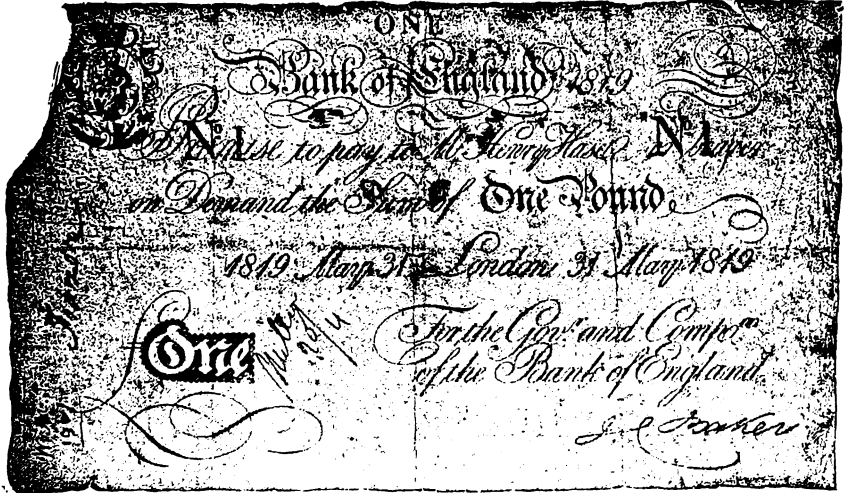 ONE
Bank of England 1819
No. 1 No. 1
I Promise to pay to Mr. Henry Hase
on Demand the Sum of One Pound
1819 May 31 London 31 May 1819
For the Govr. and Compa.
One
of the Bank of England
J. Baker